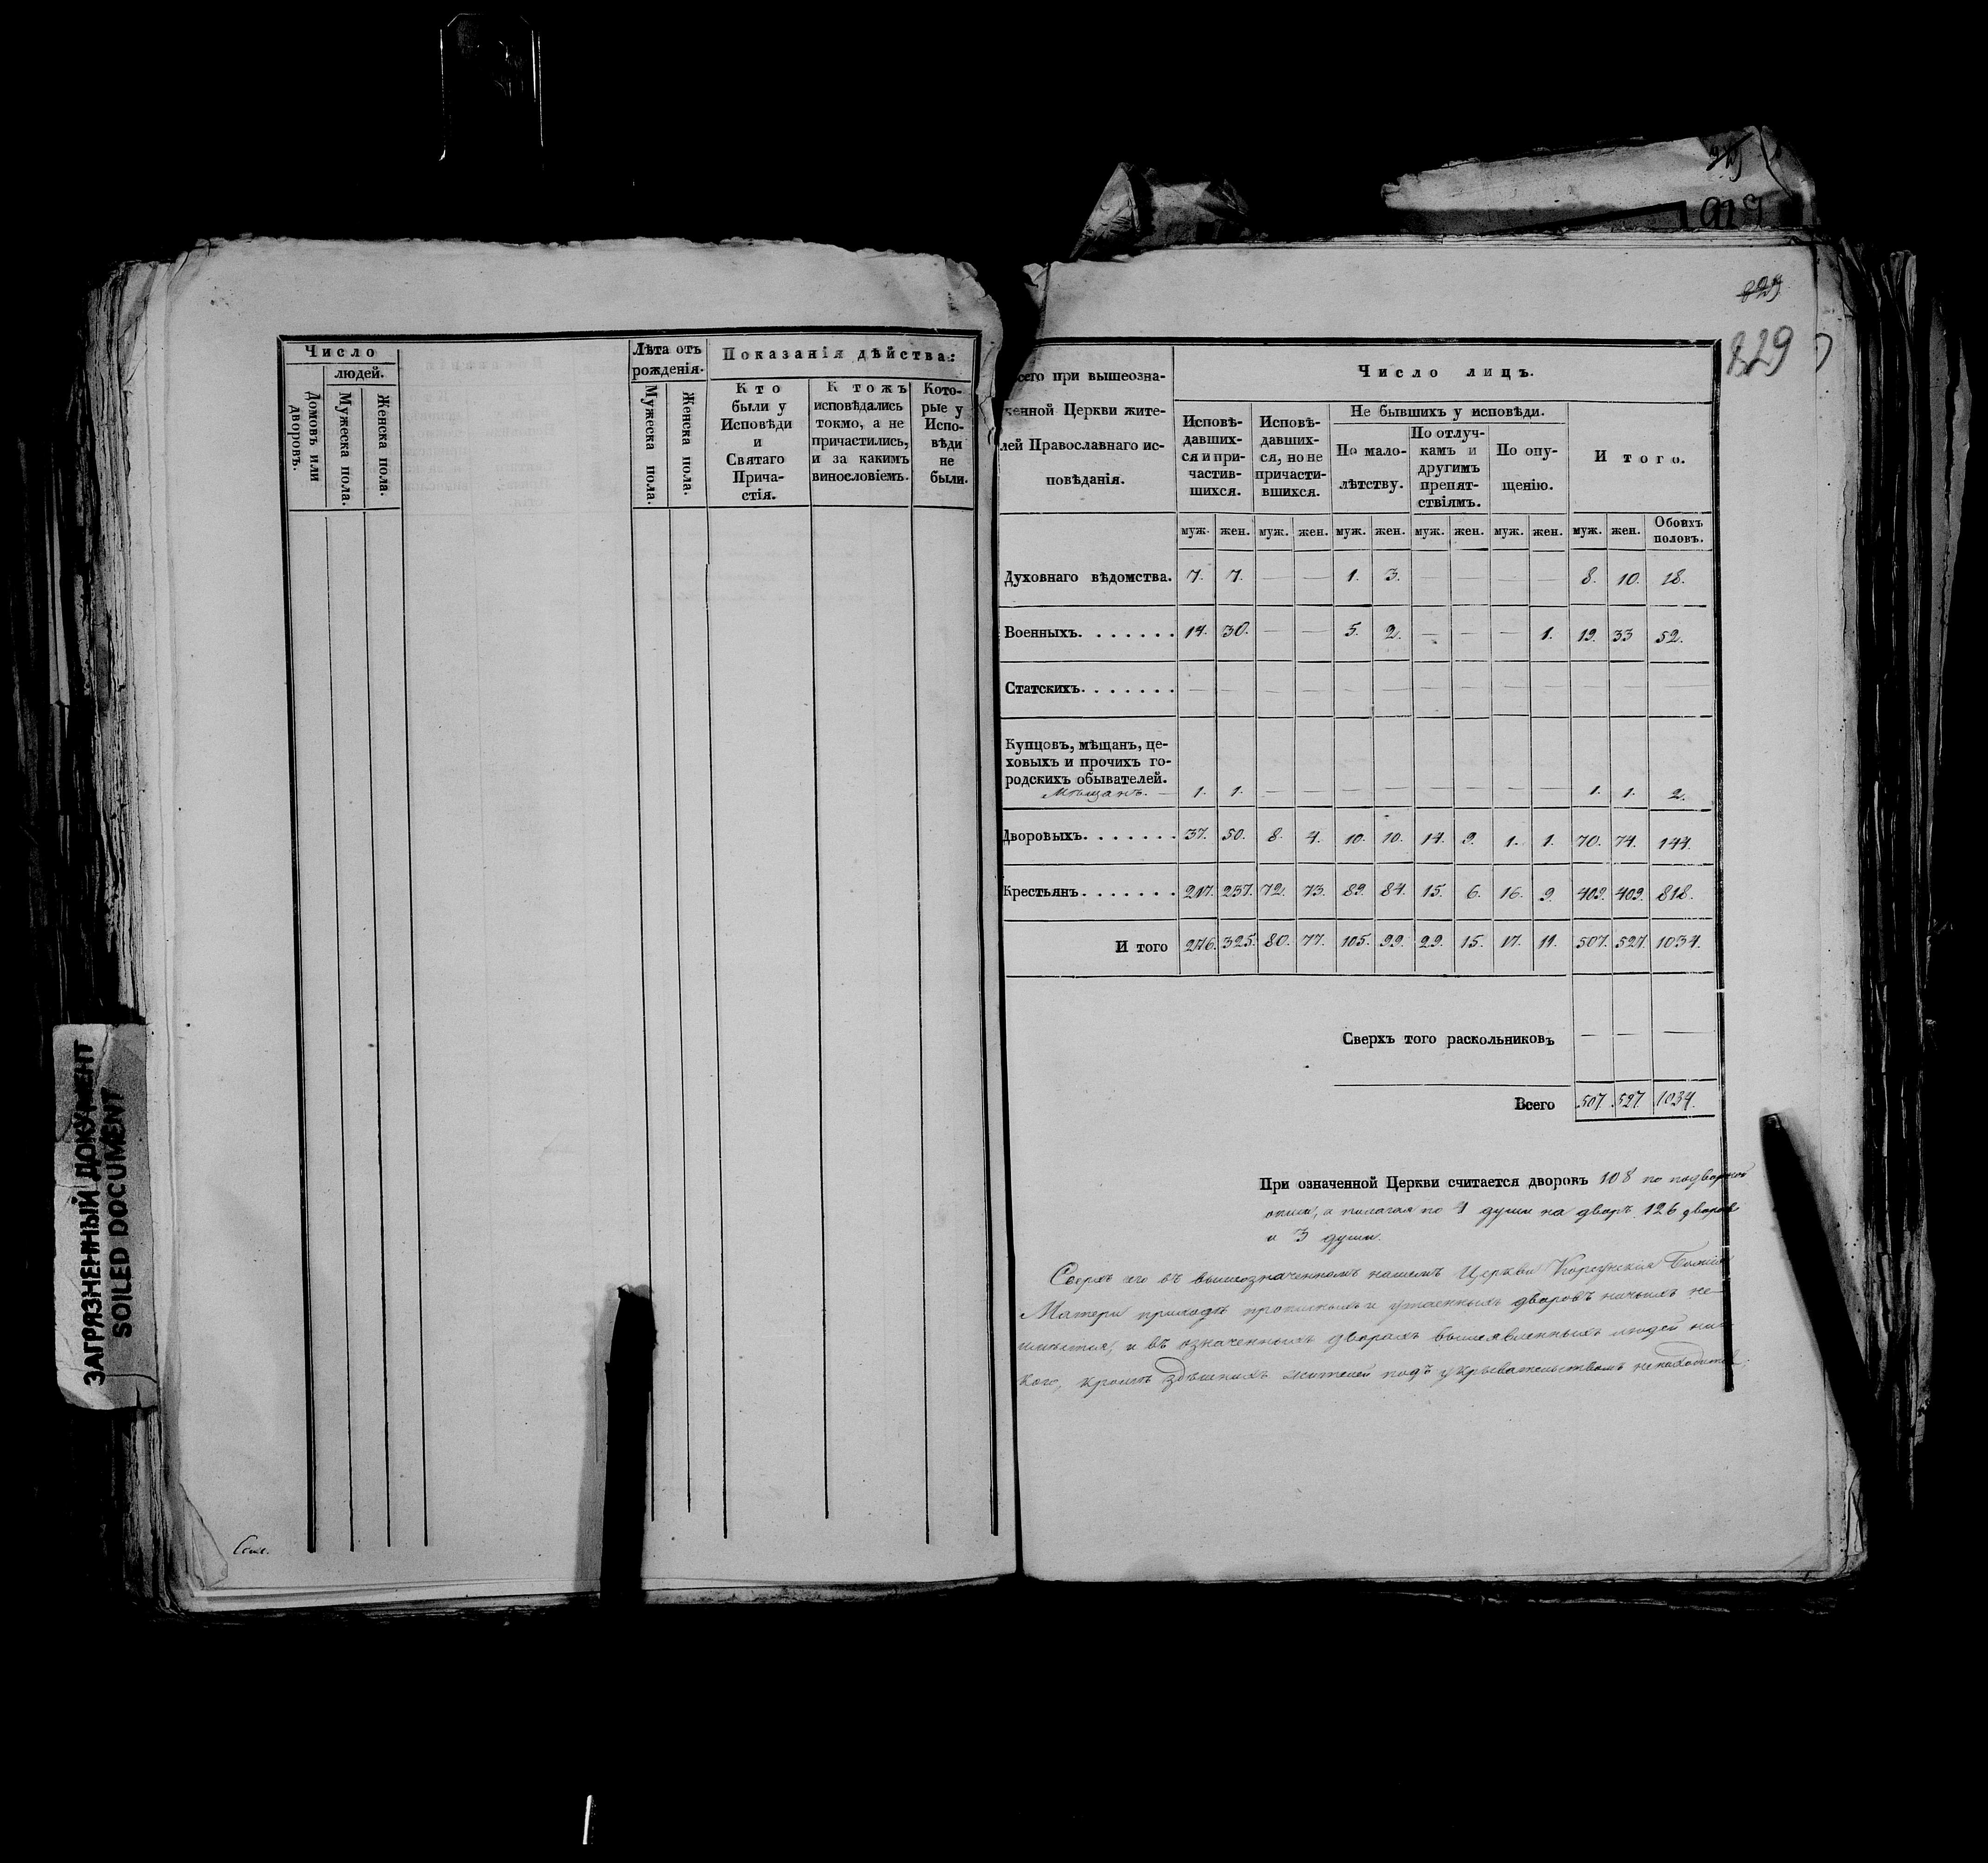 Число
людей.
Домовъ или дворовъ.
Мужеска пола.
Женска пола.
Лѣта отъ
рожденія.
Мужеска пола.
Женска пола.
Показанія дѣйства:
Кто
были у
Исповѣди
и
Святаго
Прича-
стія.
Ктожъ
исповѣдались
токмо, а не
причастились,
и за какимъ
винословіемъ.
Кото-
рые у
Испо-
вѣди
не
были.
ЗАГРЯЗНЕННЫЙ ДОКУМЕНТ
SOILED DOCUMENT
829
829
сего при вышеозна-
ченной Церкви жите-
лей Православнаго ис-
повѣданія.
Число лицъ.
Исповѣ-
давших-
ся и при-
частив-
шихся.
Исповѣ-
давших-
ся, но не
причасти-
вшихся.
Не бывшихъ у исповѣди.
По мало-
лѣтству.
По отлуч-
камъ и
другимъ
препят-
ствіямъ.
По опу-
щенію.
Итого.
муж. жен. муж. жен. муж. жен. муж. жен. муж. жен. муж. жен. Обоихъ
половъ.
Духовнаго вѣдомства. 7. 7. — — 1. 3. — — — — 8. 10. 18.
Военныхъ. . . . . . . 14. 30. — — 5. 2. — — — 1. 19. 33 52.
Статскихъ. . . . . . . — — — — — — — — — — — — —
Купцовъ, мѣщанъ, це-
ховыхъ и прочихъ го-
родскихъ обывателей.
Мѣщанъ. — 1. 1. — — — — — — — — 1. 1. 2.
Дворовыхъ. . . . . . . 37. 50. 8. 4. 10. 10. 14. 9. 1. 1. 70. 74. 144.
Крестьянъ. . . . . . . 217. 237. 72. 73. 89. 84. 15. 6. 16. 9. 409. 409. 818.
И того 276. 325. 80. 77. 105. 99. 29. 15. 17. 11. 507. 527. 1034.
Сверхъ того раскольниковъ — — —
Всего 507. 527 1034.
При означенной Церкви считается дворовъ 108 по подворной
описи, а полагая по 4 души на дворъ 126 дворовъ
и 3 души.
Сверхъ сего въ вышеозначенномъ нашемъ Церкви Корсунскія Божія
Матери приходѣ прописныхъ и утаенныхъ дворовъ ничьихъ не
имѣется, и въ означенныхъ дворахъ вышеявленныхъ людей ни
кого, кромѣ здѣшнихъ жителей подъ укрывательствомъ не находится.